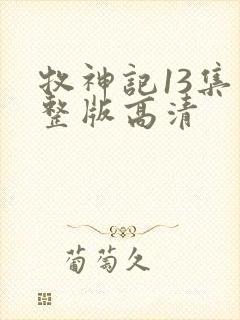 牧神記13集
整版高清
葡萄久